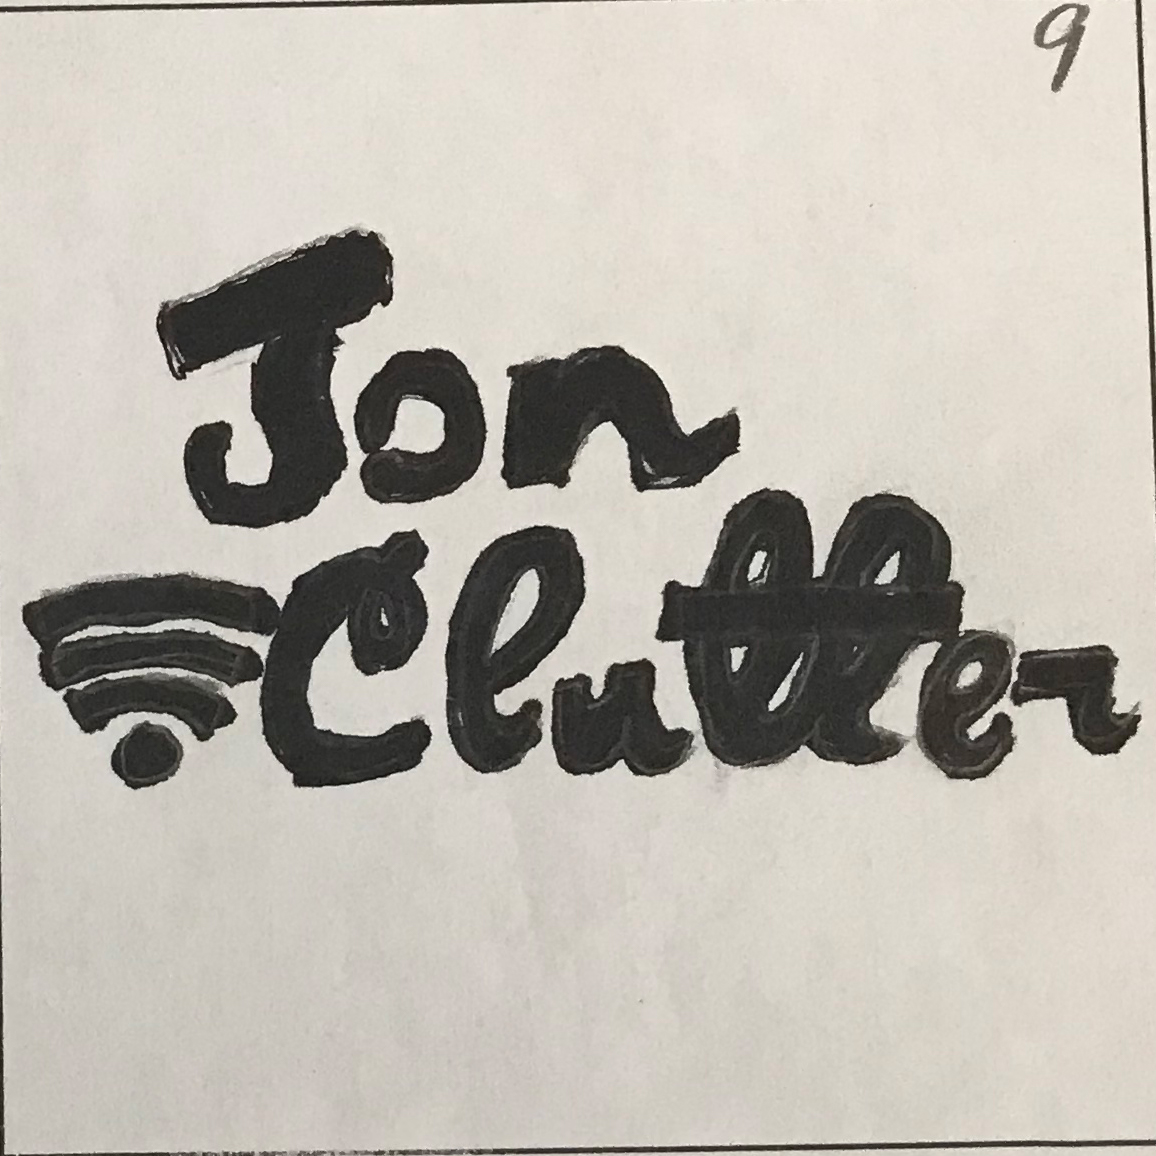 9
Jon
Clutter